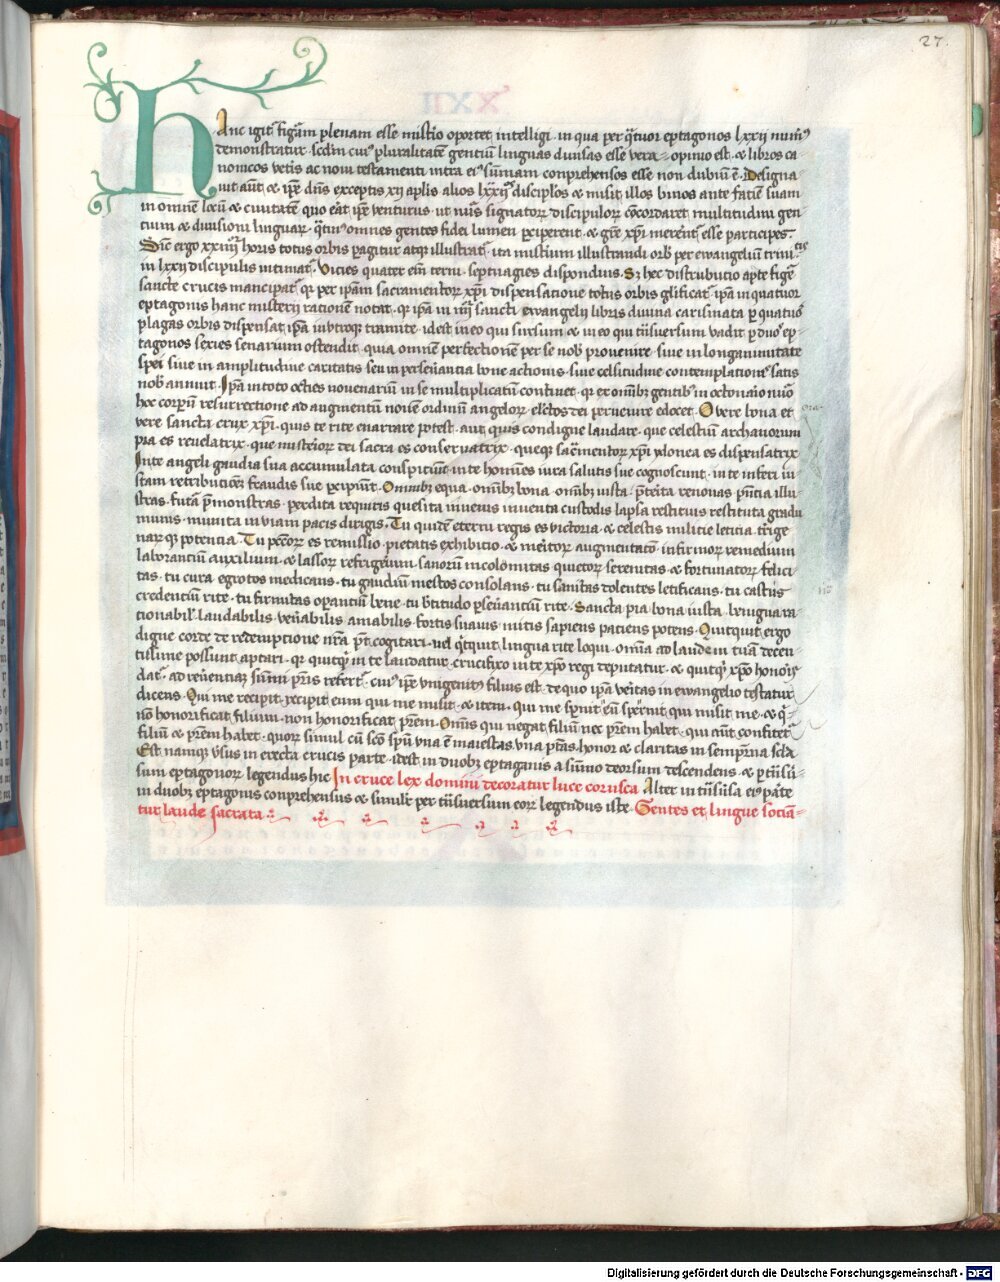 27.
Hanc igit͛ figūam plenam esse mist͛io oportet intelligi · in qua per q̄tuor eptagonos lxxii num̄⁹
demonstratur · sc̄dm cui⁹ pluralitatē gentiū linguas diu͛sas esse vera opinio est · et libros ca
nonicos vet͛is ac noui testamenti intra ei⁹ sūmam conprehensos esse non dubiū ē · Designa
uit aūt et ip̄e dn̄s exceptis xij aplis alios lxxij disciplos et misit illos binos ante faciē suam
in omnē locū et ciuitatē quo eāt ip̄e venturus · ut num̄s signatorꝝ discipulorꝝ cōcordaret multitudini gen
tium et diuisioni linguarꝝ · q̄tin⁹ omnes gentes fidei lumen p̱ciperent · et gr̄e xp̄i meren͛t esse participes ·
Sic ergo xxiiij horis totus orbis p̱agitur atqꝫ illustrat͛ · ita mist͛ium illustrandi orb̄ per ewangeliū trini
tis
in lxxij discipulis intimat͛ · Vicies quater em̄ terni · septuagies dispondius · Sꝫ hec distributio apte fig͛e
sancte crucis mancipat͛ qꝛ per ip̄am sacramentorꝝ xp̄i dispensatione totus orbis gl̄ificat͛ ip̄a in quatuor
eptagonis hanc misterij rationē notat · qꝛ ip̄a in iiij sancti ewangelij libris diuina carismata p̱ quatuor
plagas orbis dispensat ip̄a in vtroqꝫ tramite · id est in eo qui sursum et in eo qui t͛nsu͛sum vadit p̱ duos ep
tagonos sexies senarium ostendit · quia omnē perfectionē per se nob̄ prouenire · siue in longanimitate
spei siue in amplitudine caritatis seu in perseu͛antia bone actionis · siue celsitudine contemplationis satis
nob̄ annuit · Ipā in toto octies nouenariū in se multiplicatum continet · qꝛ ex om̄ibꝫ gentibꝫ in octonario nūo
hoc corpꝝū resurrectione ad augmentū nouiē ordinū angelorꝝ · el̄ctos dei peruenire edocet · O vere bona et
vere sancta crux xp̄i · quis te rite enarrare potest · aut quis condigne laudare · que celestium archanorum
pia es reuelatrix · que misteriorꝝ dei sacra es conseruatrix · queqꝫ sac͛mentorꝝ xp̄i ydonea es dispensatrix
In te angeli gaudia sua accumulata conspiciunt · in te homīes iura salutis sue cognoscunt · in te inferi iu
stam retributionē fraudis sue p̱cipiūt · Omnibꝫ equa · om̄ibꝫ bona · om̄ibꝫ iusta · p̄t͛ita renouas p̄ntia illu
stras · fut͛a p̄monstras · perdita requiris quesita inuenis inuenta custodis lapsa restituis restituta gradu
munis · munita in viam pacis dirigis · Tu quidē eterni regis es victoria · et celestis militie leticia · t͛rige
narꝝqꝫ potencia · Tu pccorꝝ es remissio · pietatis exhibicio · et meritorꝝ augmentatō · infirmorꝝ remedium
laborantiū auxilium · et lassorꝝ refrigeriū · sanorū incolomitas · quietorꝝ serenitas · et fortunatorꝝ felici
tas · tu cura egrotos medicans · tu gaudiū mestos consolans · tu sanitas dolentes letificans · tu castitas
credentiū rite · tu firmitas op̱antiū bene · tu b̄titudo p̱seu͛antiū rite · Sancta pia bona iusta · benigna ra
tionabil̄ laudabilis ven͛abilis amabilis fortis suauis mitis sapiens patiens potens · Quitquit ergo
digne corde de redemptione nr̄a p̄t cogitari · uel q̄tquit lingua rite loqui · om̄ia ad laudem tuā decen
tissime possunt aptari · qꝛ quitqꝫ in te laudatur · crucifixo in te xp̄o regi deputatur · et quitqꝫ xp̄o honoris
dat͛ · ad reuerenciaꝫ sūmi pr̄is refert͛ · cui⁹ ip̄e vnigenit⁹ filius est · de quo ip̄a veritas in ewangelio testatur
dicens · Qui me recipit · recipit eum qui me misit · et item · qui me sp̱nit eū sp̱nit qui misit me · et q̄
nō honorificat filium · non honorificat pr̄em · Omīs qui negat filiū nec pr̄em habet · qui aūt confitet͛
filiū et pr̄em habet · quorꝝ simul cū sc̄o sp̄u vna ē maiestas vna p̄tas · honor et claritas in sempit͛na scl̄a
Est namqꝫ v͛sus in erecta crucis parte · id est in duobꝫ eptagonis a sūmo deorsum descendens · et p̱ t͛nsu͛
sum eptagonorꝝ legendus hic In cruce lex domini decoratur luce corusca Alter in t͛nsu͛sa ei⁹ p̱ate
in duobꝫ eptagonis conprehensus et simil̄r per t͛nsuersum eorꝝ legendus iste · Gentes et lingue socian
tur laude sacrata
Digitalisierung gefördert durch die Deutsche Forschungsgemeinschaft - DFG